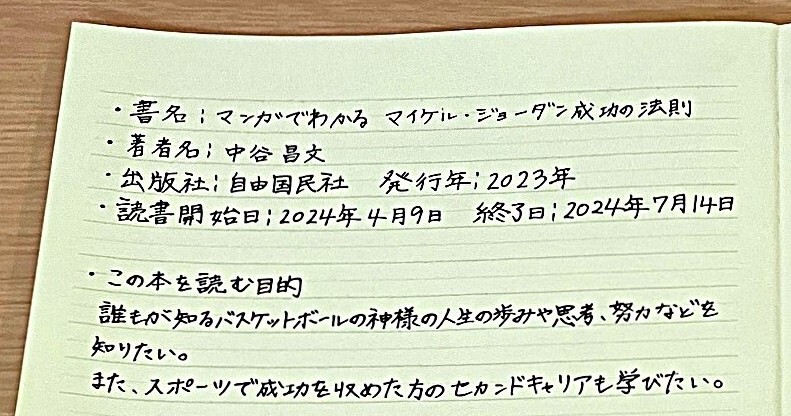 ・書名；マンガでわかる マイケル・ジョーダン成功の法則
・著者名；中谷 昌文
・出版社；自由国民社　発行年；2023年
・読書開始日；2024年4月9日　終了日；2024年7月14日
・この本を読む目的
誰もが知るバスケットボールの神様の人生の歩みや思考、努力などを
知りたい。
また、スポーツで成功を収めた方のセカンドキャリアも学びたい。